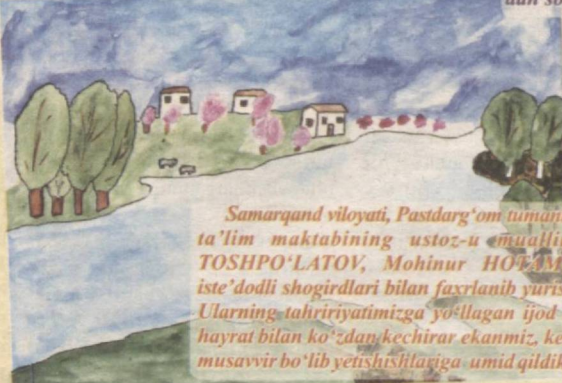 Samarqand viloyati, Pastdarg‘om tumani
ta’lim maktabining ustoz-u
TOSHPO‘LATOV, Mohinur
iste’dodli shogirdlari bilan faxrlanib
Ularning tahririyatimizga yo‘llagan ijod
hayrat bilan ko‘zdan kechirar ekanmiz,
musavvir bo‘lib yetishishlariga umid